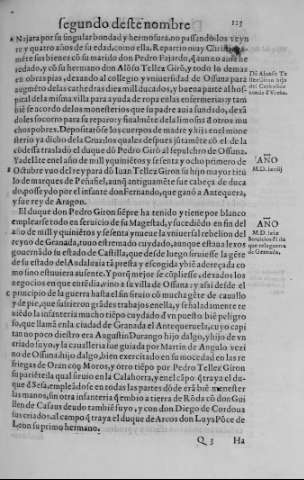 segundo deste nombre
Najara por su singular bondad y hermosura, no passando los veyn
re y quatro años de su edad, como ella. Repartio muy Christiana
mẽte sus bienes cõ su marido don Pedro Fajardo, q̃ aun no auia he
redado, y cõ su hermano don Alõso Tellez Girõ, y todo lo demas
en obras pias, dexando al collegio y vniuersidad de Ossuna para
augmẽto de las cathedras diez mill ducados, y buena parte al hos
pital de la misma villa para ayuda de ropa en las enfermerias, y tam
biẽ se acordo delos monesterios que su padre auia fundado, dexã
doles socorro para su reparo; y finalmẽte dela limosna d̃ otros mu
chos pobres. Depositarõse los cuerpos de madre y hija enel mone
sterio ya dicho dela Gracia
los quales despues jũtamẽte cõ el dela
cõdessa trasladò el duque dõ Pedro Girõ al sepulchro de Ossuna.
Y adelãte enel año de mill y quiniẽtos y sesenta y ocho primero de
Octubre vuo del rey para dõ Iuan Tellez Giron su hijo mayor titu
lo de marques de Peñafiel, aunq̃ antiguamẽte fue cabeça de duca
do, posseydo por el infante don Fernando, que ganò a Antequera,
y fue rey de Aragon.
El duque don Pedro Giron siẽpre ha tenido y tiene por blanco
emplearse todo en seruicio de su Magestad, y succedido en fin del
año de mill y quiniẽtos y sesenta y nueue la vniuersal rebelion del
reyno de Granada, tuuo estremado cuydado, aunque estaua lexos
gouernãdo su estado de Castilla, que desde luego siruiesse la gẽte
de su estado del Andaluzia tã presta y escogida y biẽ adereçada co
mo sino estuuiera ausente. Y porq̃ mejor se cũpliesse, dexados los
negocios en que entẽdia, vino a su villa de Ossuna: y assi desde el
principio de la guerra hasta el fin siruio cõ mucha gẽte de cauallo
y de pie, que sufrieron grãdes trabajos enella, y señaladamente te
niẽdo la infanteria mucho tiẽpo cuydado d̃ vn puesto biẽ peligro
so, que llamã enla ciudad de Granada el Antequeruela, cuyo capi
tan no poco diestro era Augustin Durango hijo dalgo, hijo de vn
criado suyo, y la caualleria fue guiada por Martin de Angulo vezi
no de Ossuna hijo dalgo, bien exercitado en su mocedad en las re
friegas de Oran cõ Moros, y otro tiẽpo por Pedro Tellez Giron
su pariẽte, la qual siruio en la Calahorra, y enel cãpo q̃ traya el du
que d̃ Sesa, empleãdose en todas las partes dõde era biẽ menester
las manos, sin otra infanteria q̃ embio a tierra de Rõda cõ don Gui
llen de Casaus deudo tambiẽ suyo, y con don Diego de Cordoua
su criado, al campo q̃ traya el duque de Arcos don Luys Põce de
Leon su primo hermano.
Q 3 Ha
AÑO
M.D. lxviij
AÑO
M.D. lxix